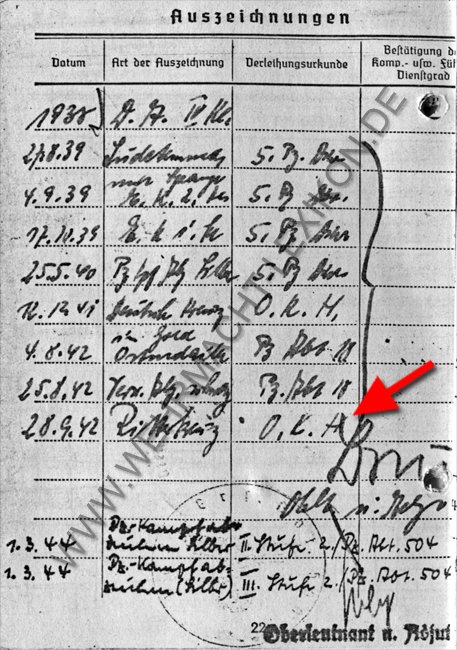 Auszeichnungen
Datum Art der Auszeichnung Verleihungsurkunde Bestätigung d
Komp.- usw. Füh
Dienstgrad
1938 D. A. IV Kl.
27.8.39 Sudetenmed. 5. Pz. Div.
mit Spange
4.9.39 E. K. 2. Kl. 5. Pz. Div.
17.10.39 E. K. 1. Kl. 5. Pz. Div.
25.5.40 Pz. Silber 5. Pz. Div.
12.12.41 Deutsch Kreuz O. K. H.
in Gold
4.8.42 Ostmedaille Pz. Abt. 18
25.8.42 Verw. Abz. Pz. Abt. 18
28.9.42 Ritterkreuz O. K. H.
1.3.44 Pz.-Kampfab-
zeichen Silber II. Stufe 2./Pz. Abt. 504
1.3.44 Pz.-Kampfab-
zeichen (Silber) III. Stufe 2./Pz. Abt. 504
22
Oberleutnant u. Adjut
WWW.WEHRMACHTLEXIKON.DE